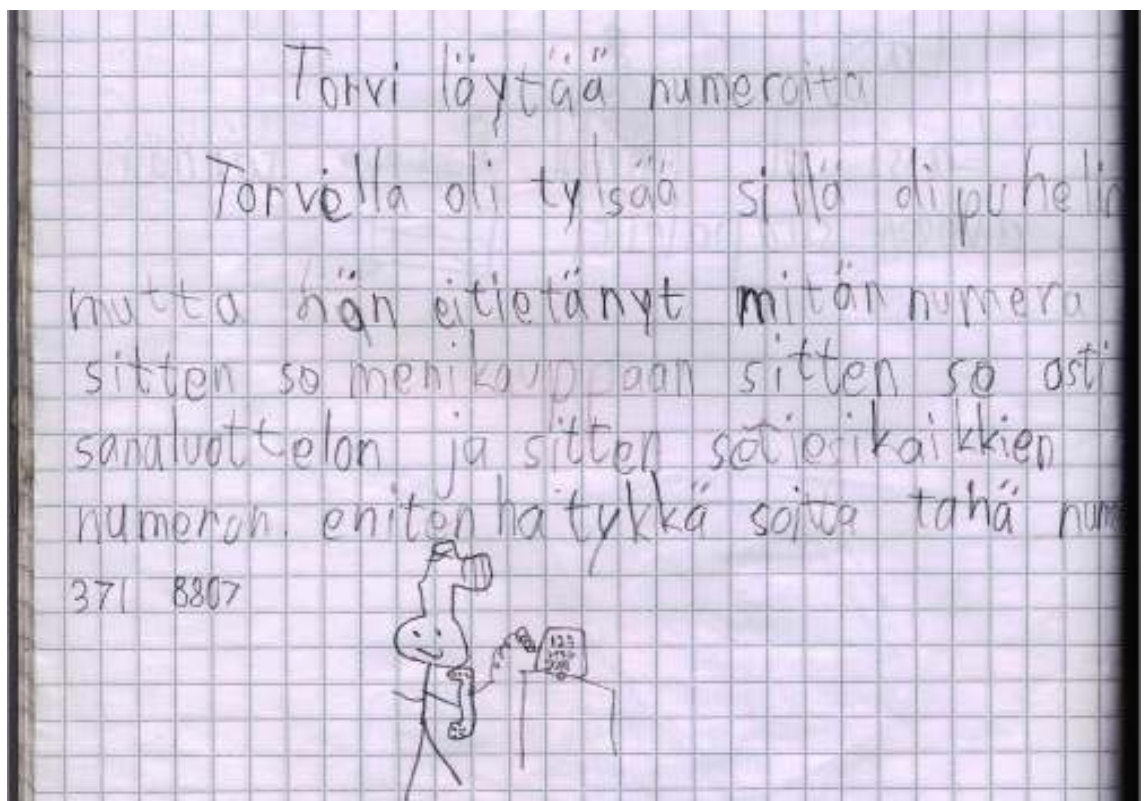 Torvi löytää numeroita
Torvella oli tylsää sillä oli puhelin
mutta hän eitietänyt mitän numera
sitten so menikauppaan sitten so osti
sanaluottelon ja sitten sotiesikaikkien
numeron. eniten ha tykkä soitta tähä num
371 8807
123